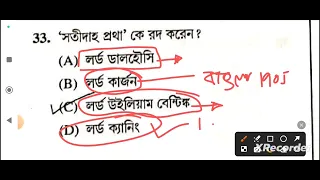 33. 'সতীদাহ প্রথা' কে রদ করেন?
(A) লর্ড ডালহৌসি
(B) লর্ড কার্জন
(C) লর্ড উইলিয়াম বেন্টিঙ্ক
(D) লর্ড ক্যানিং
XRecorde